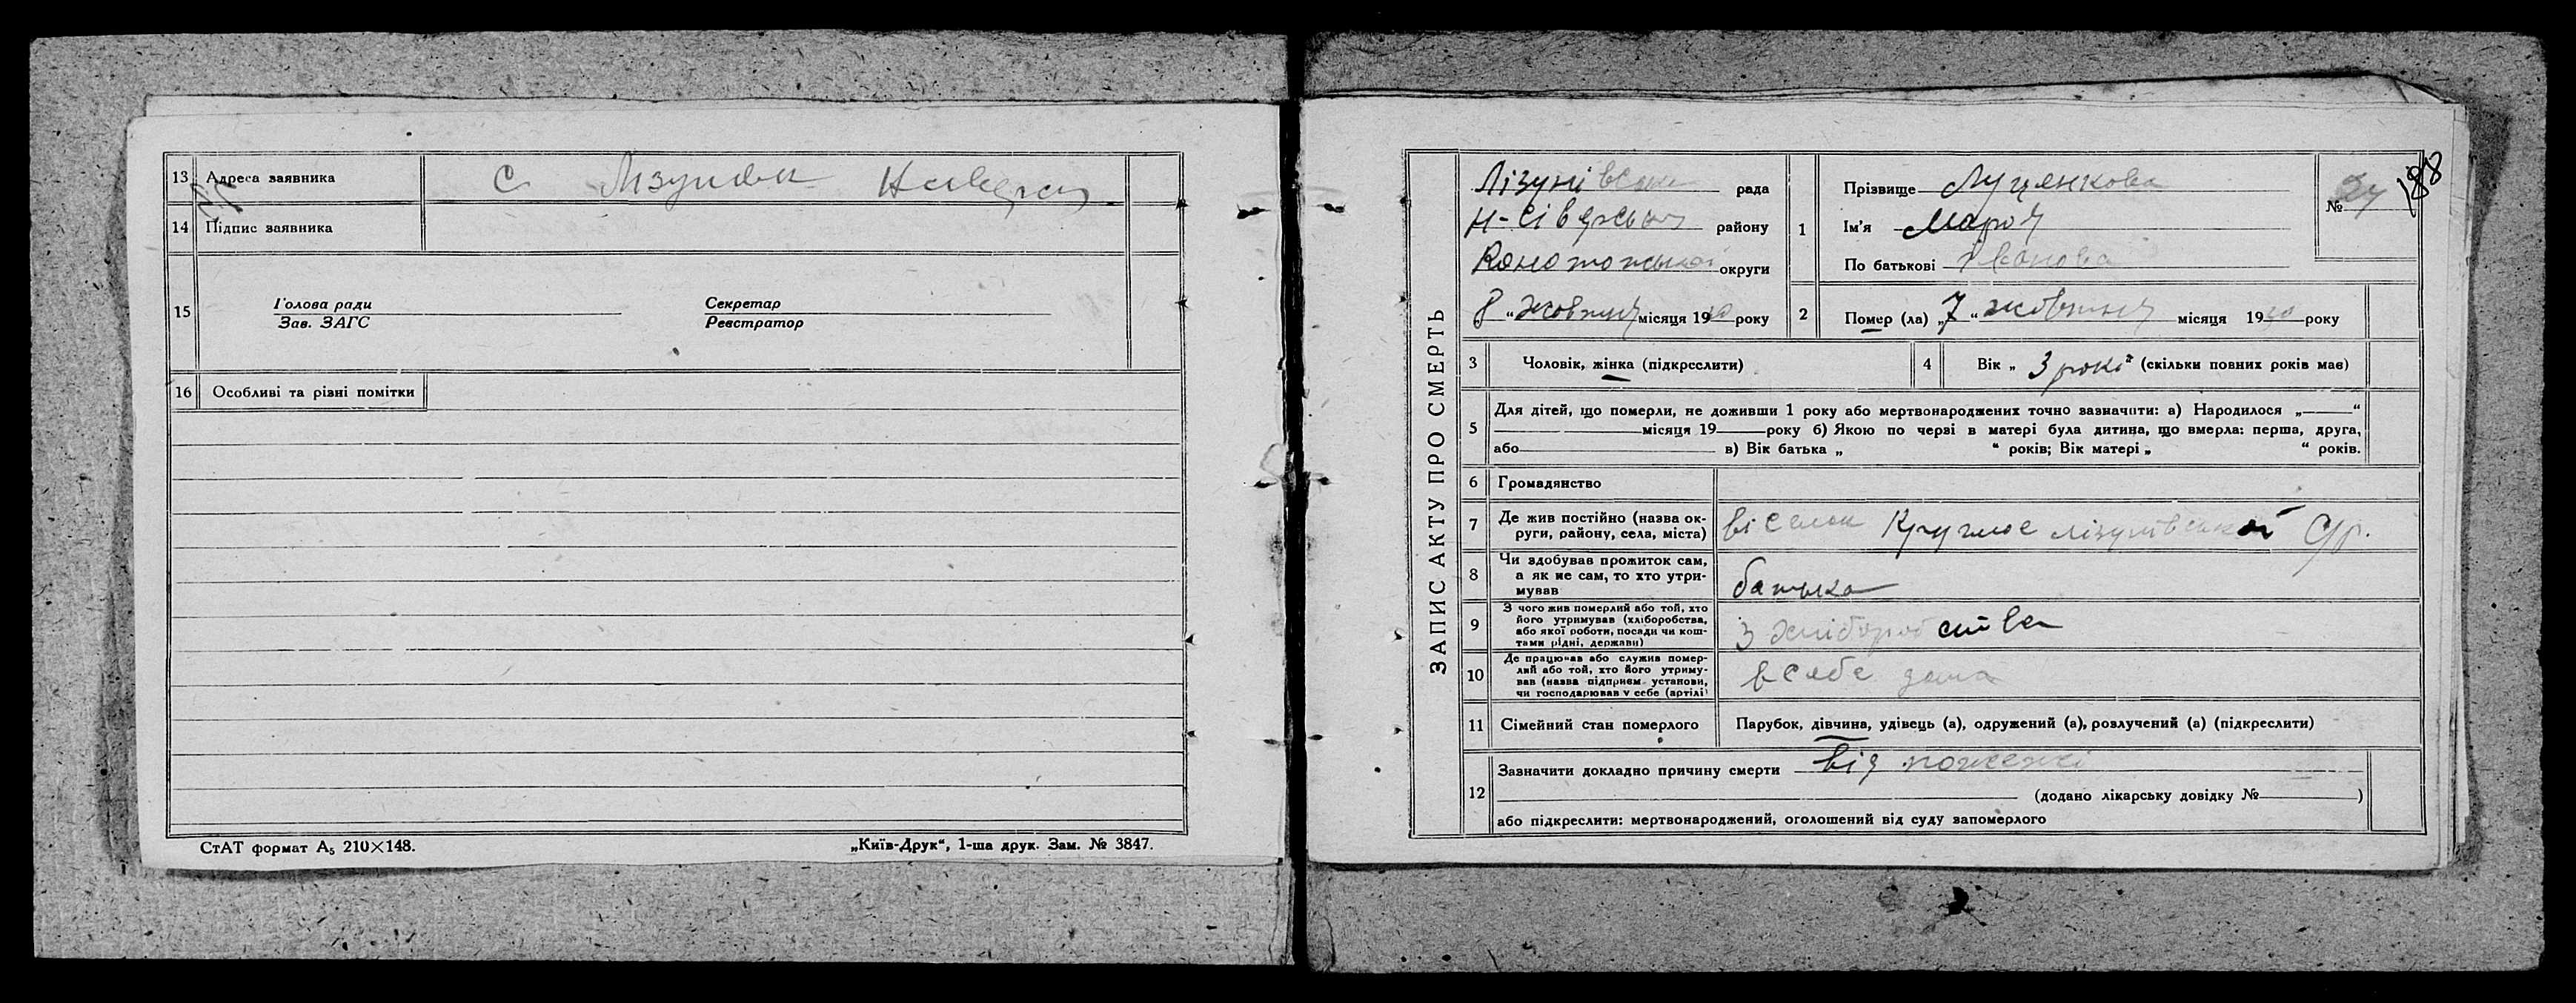 13 Адреса заявника С Лізунівка
14 Підпис заявника
15 Голова ради Секретар
Зав. ЗАГС Реєстратор
16 Особливі та різні помітки
СтАТ формат А₅ 210×148. „Київ-Друк“, 1-ша друк. Зам. № 3847.
188
ЗАПИС АКТУ ПРО СМЕРТЬ
Лізунівська рада
Н-Сіверськ району
Конотопської округи
8 „ жовтня місяця 1930 року
1 Прізвище Луценкова
Ім'я Марія
По батькові Іванова
№
2 Помер (ла) „7“ жовтня місяця 1930 року
3 Чоловік, жінка (підкреслити)
4 Вік „ 3 рокі “ (скільки повних років має)
5 Для дітей, що померли, не доживши 1 року або мертвонароджених точно зазначити: а) Народилося „ “
місяця 19 року б) Якою по черзі в матері була дитина, що вмерла: перша, друга,
або в) Вік батька „ “ років; Вік матері „ “ років.
6 Громадянство
7 Де жив постійно (назва ок-
руги, району, села, міста) Круглое лізунівської С/р.
8 Чи здобував прожиток сам,
а як не сам, то хто утри-
мував батько
9 З чого жив померлий або той, хто
його утримував (хліборобства,
або якої роботи, посади чи кош-
тами рідні, держави) З хліборобства
10 Де працював або служив помер-
лий або той, хто його утриму-
вав (назва підприєм. установи,
чи господарював у себе (артілі) в себе дома
11 Сімейний стан померлого Парубок, дівчина, удівець (а), одружений (а), розлучений (а) (підкреслити)
12 Зазначити докладно причину смерти від пожежі
(додано лікарську довідку № )
або підкреслити: мертвонароджений, оголошений від суду запомерлого